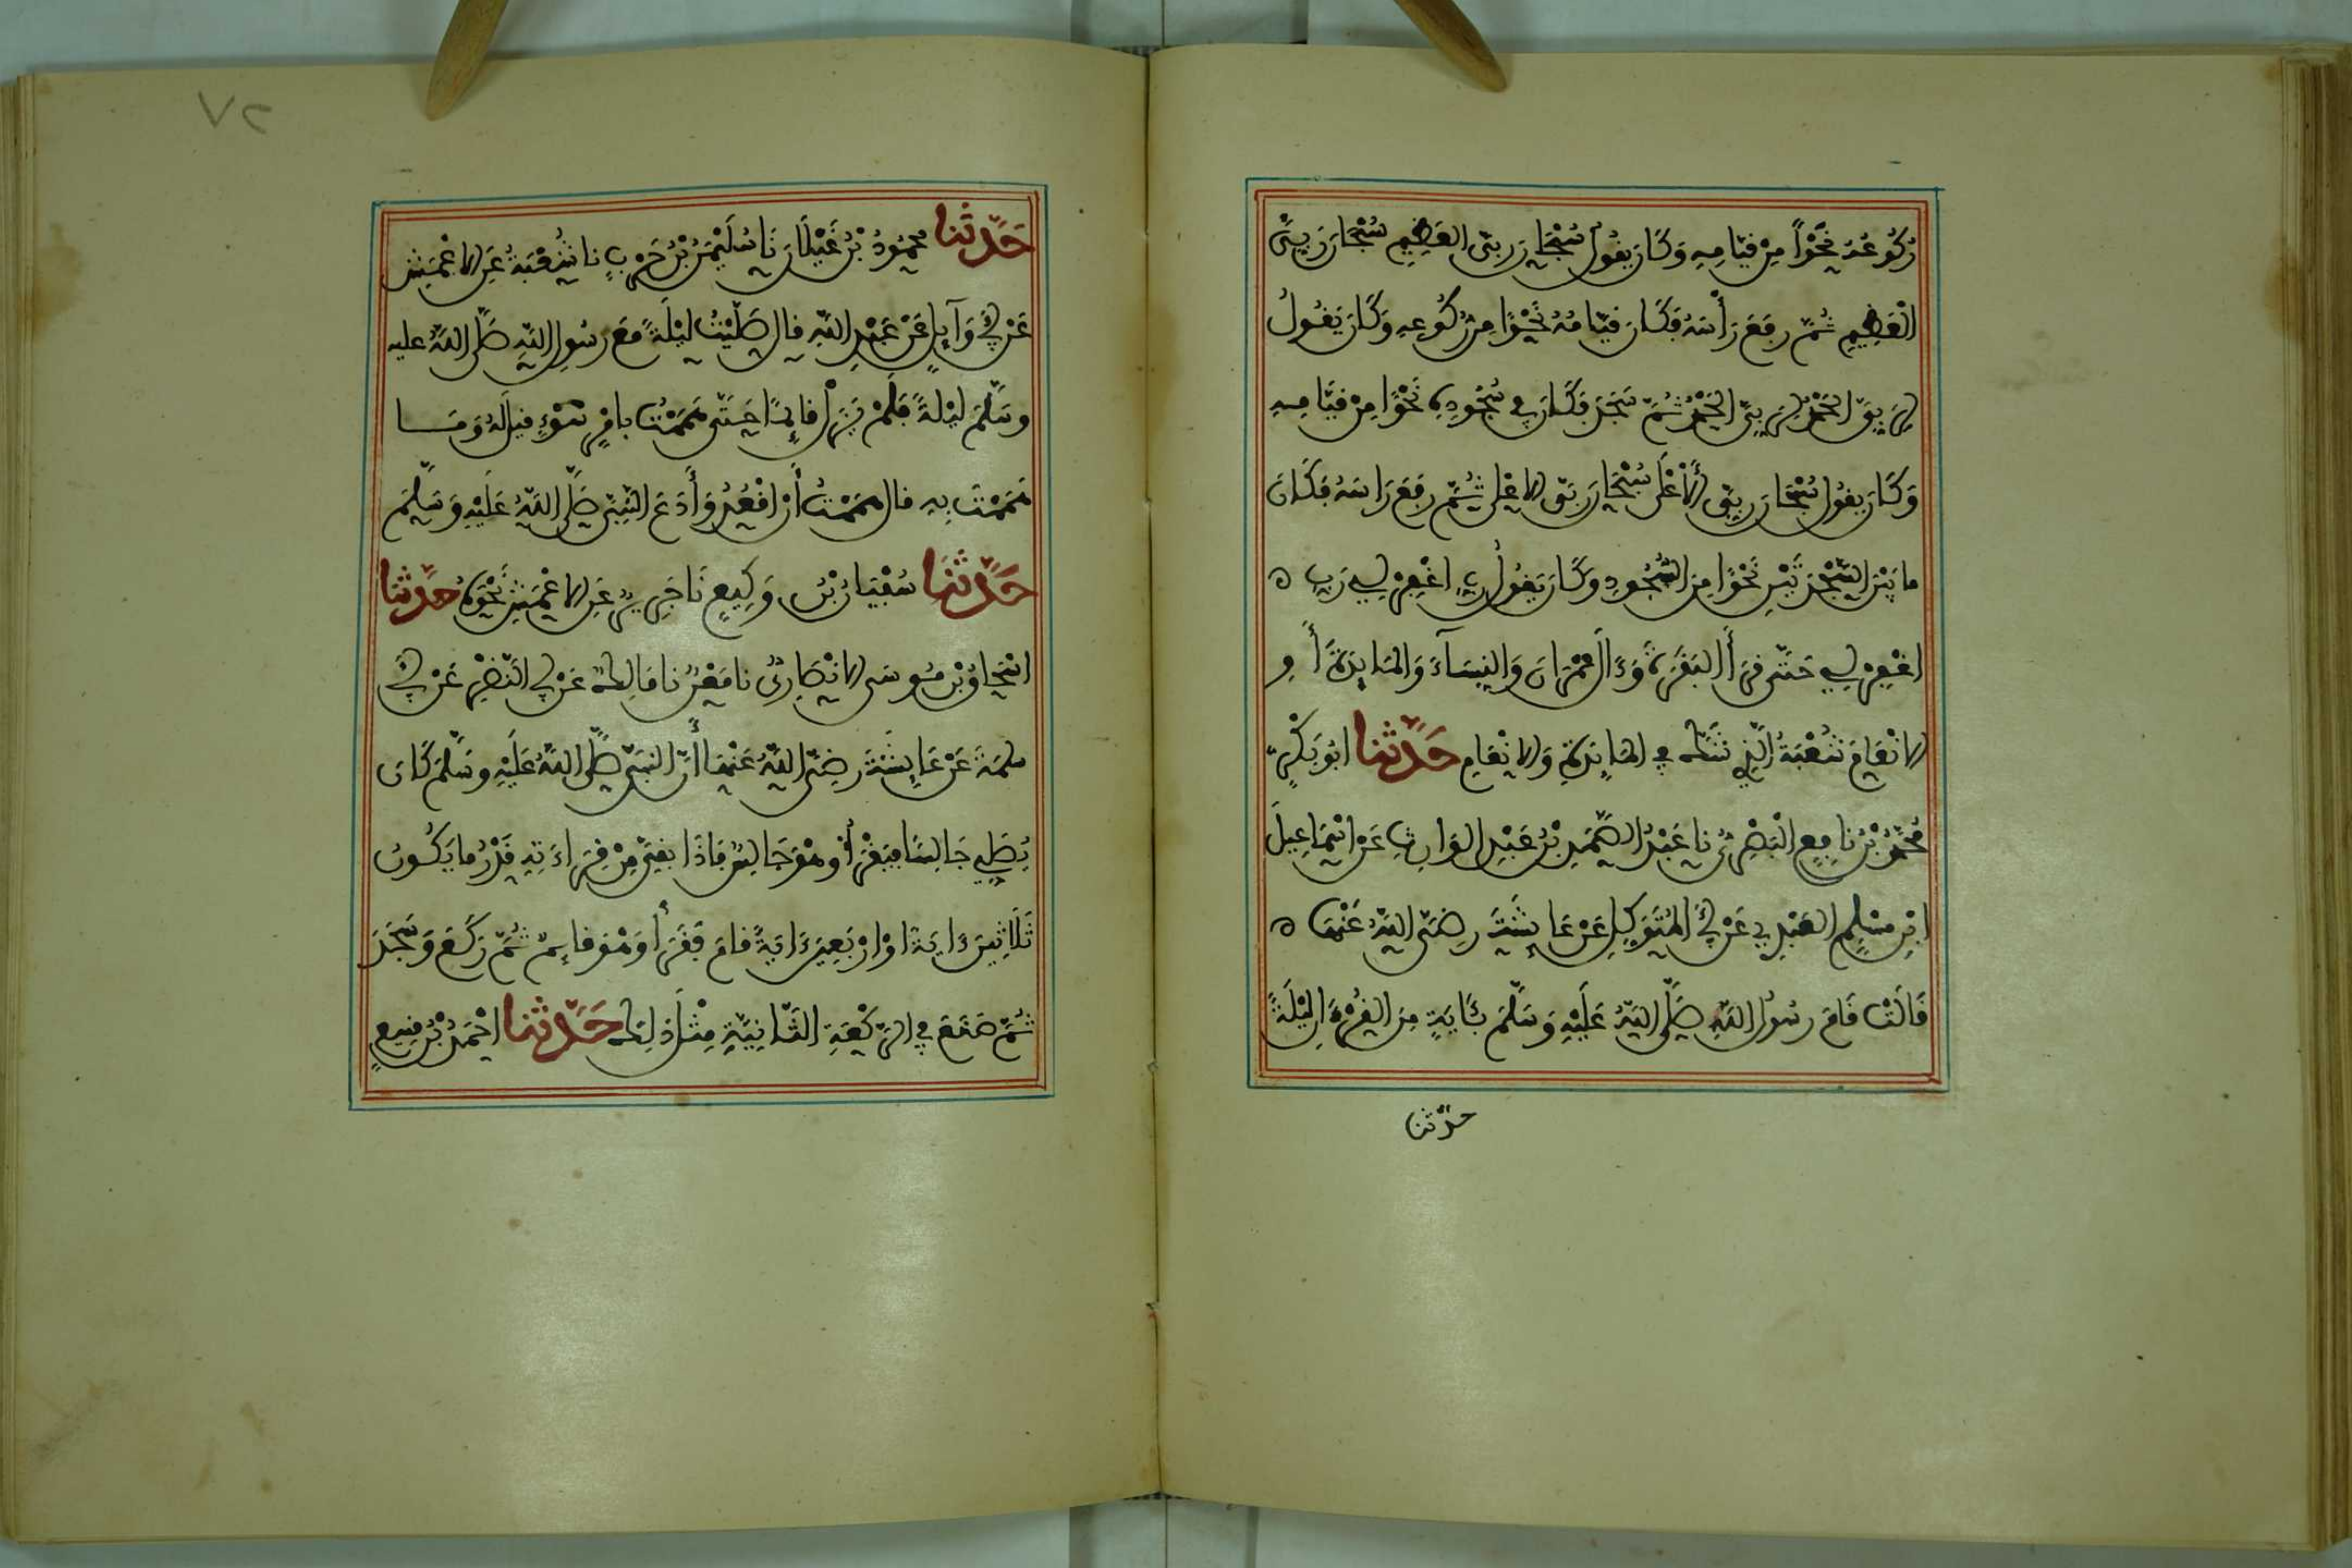 رُكُوعُهُ نَحْوًا مِنْ قِيَامِهِ وَكَانَ يَقُولُ سُبْحَانَ رَبِّيَ الْعَظِيمِ سُبْحَانَ رَبِّيَ
الْعَظِيمِ ثُمَّ رَفَعَ رَأْسَهُ فَكَانَ قِيَامُهُ نَحْوًا مِنْ رُكُوعِهِ وَكَانَ يَقُولُ
لِرَبِّيَ الْحَمْدُ لِرَبِّيَ الْحَمْدُ ثُمَّ سَجَدَ فَكَانَ فِي سُجُودِهِ نَحْوًا مِنْ قِيَامِهِ
وَكَانَ يَقُولُ سُبْحَانَ رَبِّيَ الْأَعْلَى سُبْحَانَ رَبِّيَ الاعْلى ثُمَّ رَفَعَ رَاسَهُ فَكَانَ
مَا بَيْنَ السَّجْدَتَيْنِ نَحْوًا مِنَ السُّجُودِ وَكَانَ يَقُولُ رَبِّ اغْفِرْ لِي رَبِّ ه
اغْفِرْ لِي حَتَّى قَرَأَ الْبَقَرَةَ وَءَالَ عِمْرَانَ وَالنِّسَآءَ وَالْمَايِدَةَ أَوِ
الانْعَامَ شُعْبَةُ الَّذِي شَكَّ فِي الْمَايِدَةِ وَالانْعَامِ حَدَّثَنَا ابُو بَكْرٍ
مُحَمَّدُ بْنُ نَافِعٍ الْبَصْرِيُّ نَا عَبْدُ الصَّمَدِ بْنُ عَبْدِ الْوَارِثِ عَنْ اسْمَاعِيلَ
ابْنِ مُسْلِمٍ الْعَبْدِيِّ عَنْ أَبِي الْمُتَوَكِّلِ عَنْ عَايِشَةَ رَضِيَ اللَّهُ عَنْهَا ه
قَالَتْ قَامَ رَسُولُ اللَّهِ صَلَّى اللَّهُ عَلَيْهِ وَسَلَّمَ بِـَٔايَةٍ مِنَ الْقُرْءَانِ لَيْلَةً
حدّثنا
٧٢
حَدَّثَنَا مَحْمُودُ بْنُ غَيْلَانَ نَا سُلَيْمَنُ بْنُ حَرْبٍ نا شُعْبَةُ عَنِ الاعْمَشِ
عَنْ أَبِي وَآيِلٍ عَنْ عَبْدِ اللَّهِ قَالَ صَلَّيْتُ لَيْلَةً مَعَ رَسُولِ اللَّهِ صَلَّى اللَّهُ عليه
وَسَلَّمَ لَيْلَةً فَلَمْ يَزَلْ قَايِمًا حَتَّى هَمَمْتُ بِامْرِ سَوْءٍ قِيلَ لَهُ وَمَا
هَمَمْتَ بِهِ قَالَ هَمَمْتُ أَنْ اقْعُدَ وَأَدَعَ النَّبِيَّ صَلَّى اللَّهُ عَلَيْهِ وَسَلَّمَ
حَدَّثَنَا سُفْيَانُ بْنُ وَكِيعٍ نَا جَرِيرٌ عَنِ الاعْمَشِ نَحْوَهُ حَدَّثَنَا
اسْحَاقُ بْنُ مُوسَى الانْصَارِيُّ نا مَعْنٌ نا مَالِكٌ عَنْ أَبِي النَّضْرِ عَنْ أَبِي
سلمَةَ عَنْ عَايِشَةَ رَضِيَ اللَّهُ عَنْهَا أَنَّ النَّبِيَّ صَلَّى اللَّهُ عَلَيْهِ وَسَلَّمَ كَانَ
يُصَلِّي جَالِسًا فَيَقْرَأُ وَهْوَ جَالِسٌ فَاذَا بَقِيَ مِنْ قِرَاءَتِهِ قَدْرُ مَا يَكُونُ
ثَلَاثِينَ ءَايَةً اوْ ارْبَعِينَ ءَايَةً قَامَ فَقَرَأَ وَهْوَ قَايِمٌ ثُمَّ رَكَعَ وَسَجَدَ
ثُمَّ صَنَعَ فِي الرَّكْعَةِ الثَّانِيَةِ مِثْلَ ذَلِكَ حَدَّثَنَا احْمَدُ بْنُ مَنِيعٍ